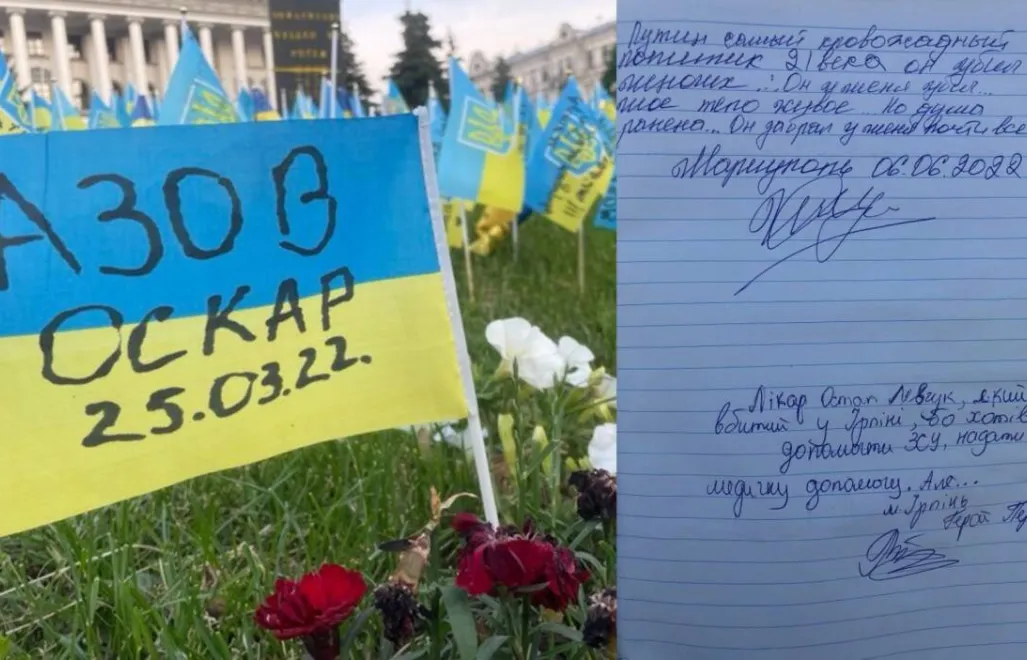 АЗОВ
ОСКАР
25.03.22.
Путин самый кровожадный
политик 21 века он убил
Он у меня
мое тело живое.. Но душа
ранена... Он забрал у меня почти все
Мариуполь 06.06.2022
Лікар Остап Левчук, який
вбитий у Ірпіні, бо хотів
допомогти ЗСУ, надати
медичну допомогу. Але...
м. Ірпінь
Герой